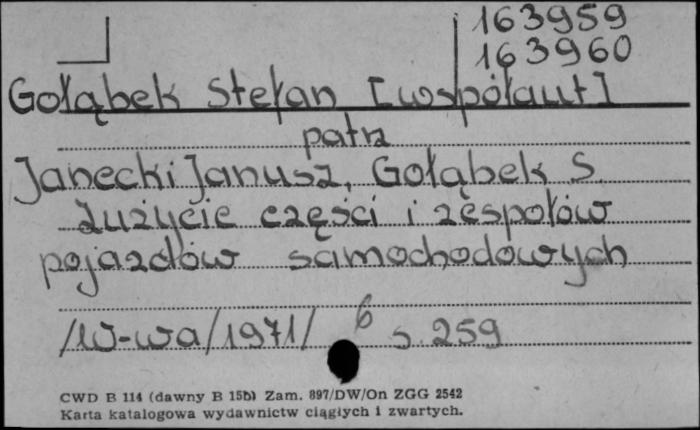 163959
163960
Gołąbek Stefan [współaut]
patrz
Janecki Janusz, Gołąbek S.
Zużycie części i zespołów
pojazdów samochodowych
/W-wa/1971/ 6 s. 259
CWD B 114 (dawny B 15b) Zam. 897/DW/On ZGG 2542
Karta katalogowa wydawnictw ciągłych i zwartych.